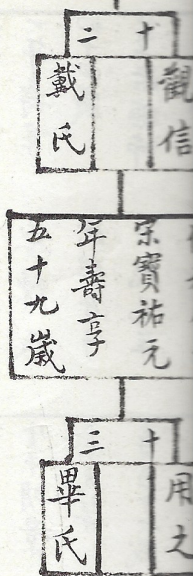 十二
觀信
戴氏
宗寳祐元
年壽享
五十九歲
十三
用之
畢氏